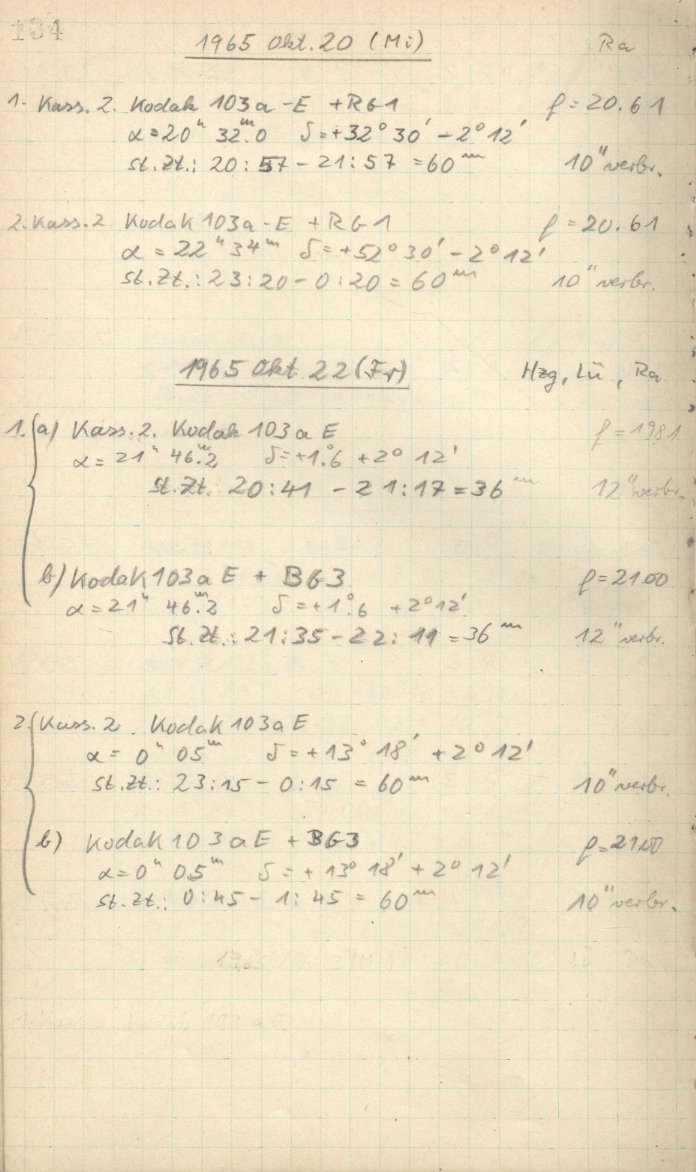 134
1965 Okt. 20 (Mi) Ra
1. Kass. 2. Kodak 103a-E + RG1 f = 20.61
α = 20ʰ 32ᵐ.0 δ = +32° 30' - 2° 12'
St.Zt.: 20:57 - 21:57 = 60ᵐ 10" verbr.
2. Kass. 2 Kodak 103a-E + RG1 f = 20.61
α = 22ʰ 34ᵐ δ = +52° 30' - 2° 12'
St.Zt.: 23:20 - 0:20 = 60ᵐ 10" verbr.
1965 Okt 22 (Fr) Hzg, Lü, Ra
1. a) Kass. 2. Kodak 103a E f = 1981
α = 21ʰ 46ᵐ.2 δ = +1°.6 + 2° 12'
St.Zt. 20:41 - 21:17 = 36ᵐ 12" verbr.
b) Kodak 103a E + BG3 f = 2100
α = 21ʰ 46ᵐ.2 δ = +1°.6 + 2° 12'
St.Zt.: 21:35 - 22:11 = 36ᵐ 12" verbr.
2. Kass. 2. Kodak 103a E
α = 0ʰ 05ᵐ δ = +13° 18' + 2° 12'
St.Zt.: 23:15 - 0:15 = 60ᵐ 10" verbr.
b) Kodak 103a E + BG3 f = 2100
α = 0ʰ 05ᵐ δ = +13° 18' + 2° 12'
St.Zt.: 0:45 - 1:45 = 60ᵐ 10" verbr.